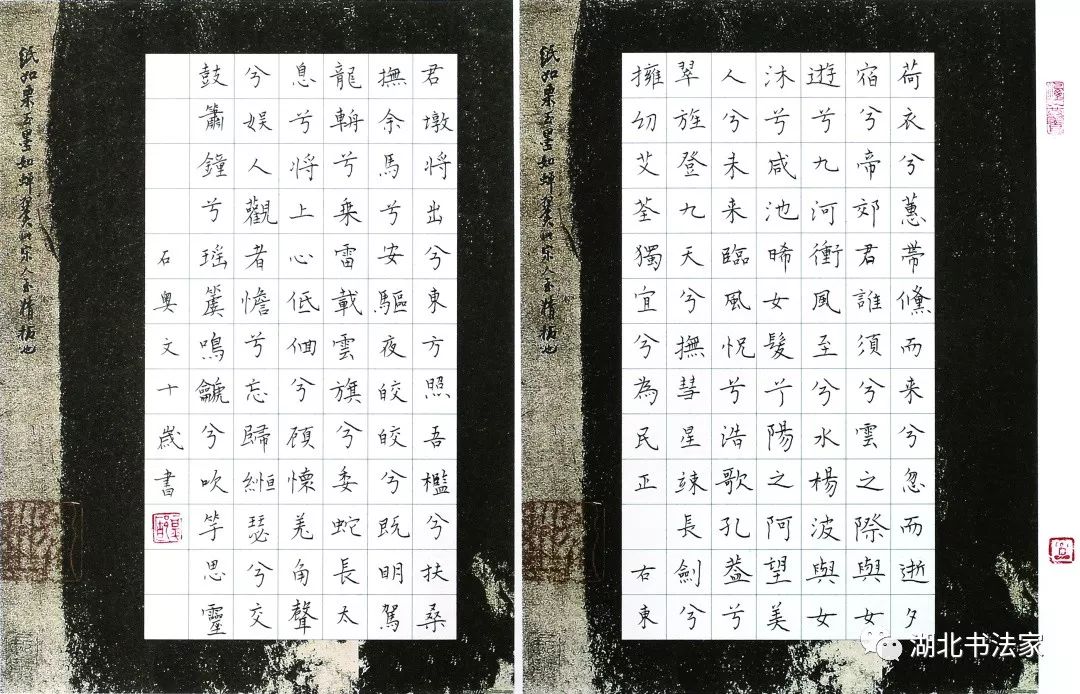 荷衣兮蕙帶儵而来兮忽而逝夕
宿兮帝郊君誰須兮雲之際與女
遊兮九河衝風至兮水楊波與女
沐兮咸池晞女髮兮陽之阿望美
人兮未来臨風怳兮浩歌孔蓋兮
翠旌登九天兮撫彗星竦長劍兮
擁幼艾荃獨宜兮為民正 右東
紙如栗玉墨如蟬翼宋人精拓也
君墩將出兮東方照吾檻兮扶桑
撫余馬兮安驅夜皎皎兮既明駕
龍輈兮乘雷載雲旗兮委蛇長太
息兮將上心低佪兮顧懷羌角聲
兮娱人觀者憺兮忘歸緪瑟兮交
鼓簫鐘兮瑶簴鳴龥兮吹竽思靈
石奥文十歲書
紙如栗玉墨如蟬翼宋人精拓也
湖北书法家